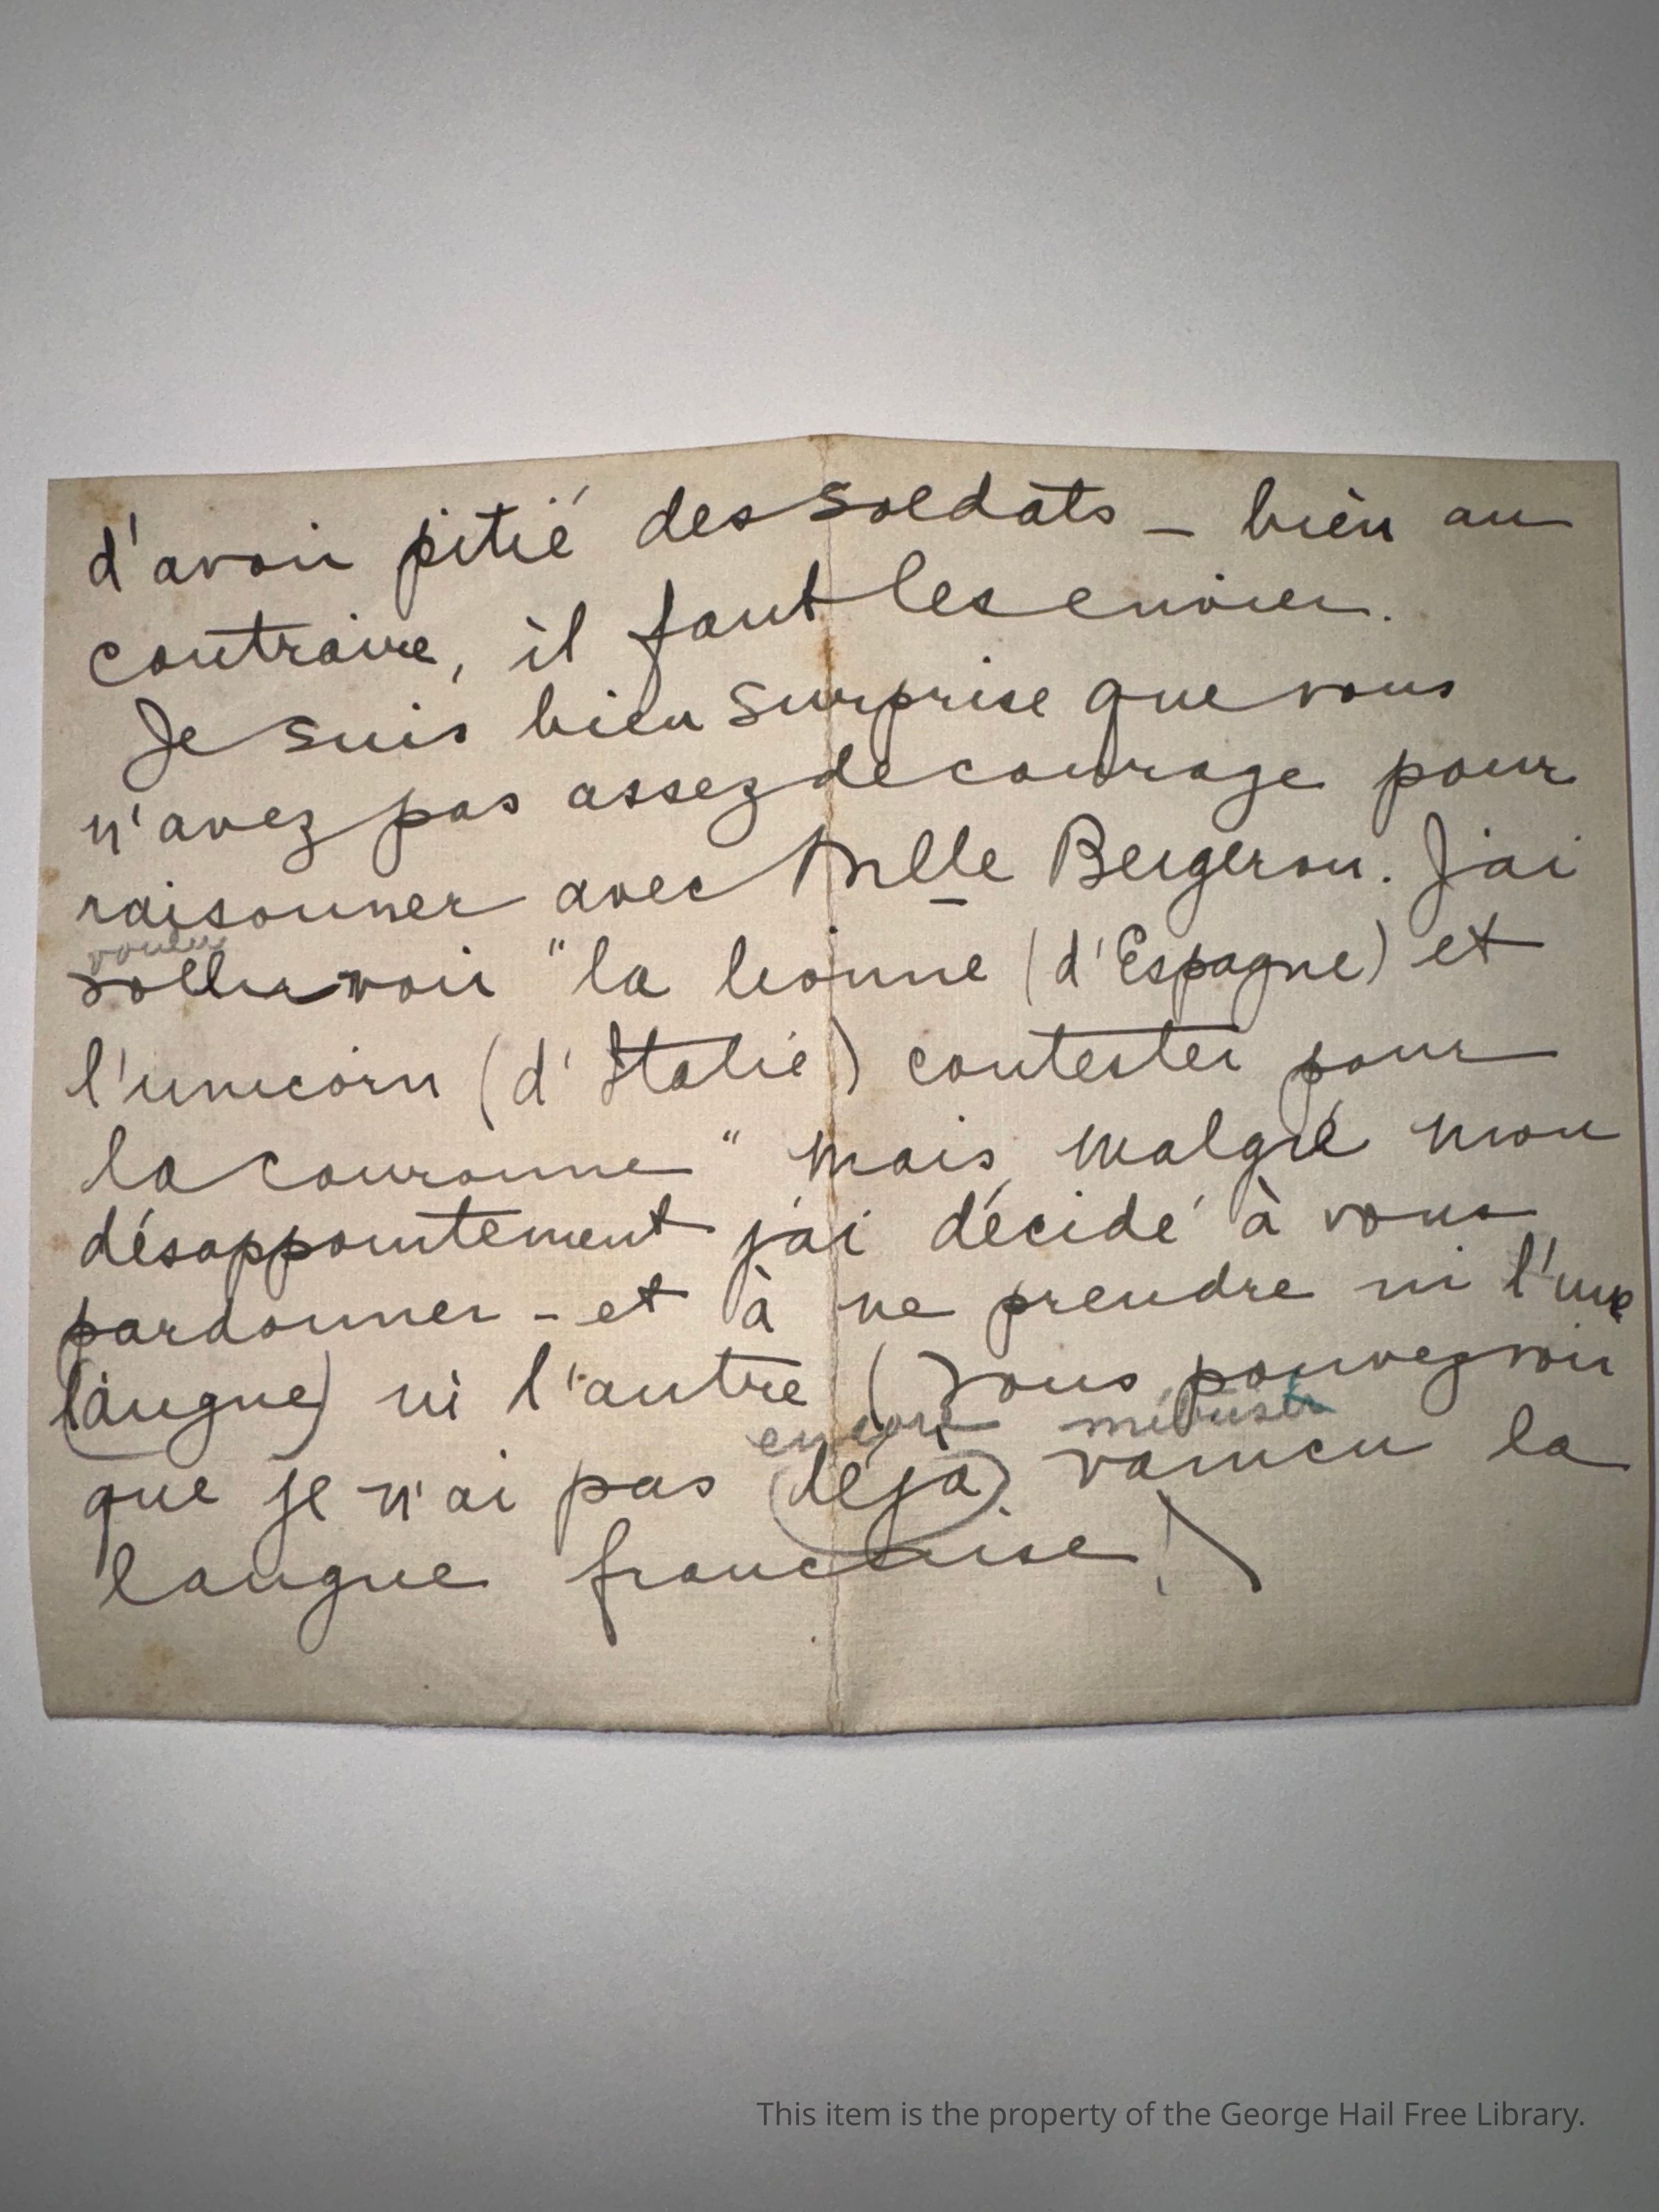 d'avoir pitié des soldats – bien au
contraire, il faut les envier.
Je suis bien surprise que vous
n'avez pas assez de courage pour
raisonner avec Mlle Bergeron. J'ai
voulu
vollu voir "la lionne (d'Espagne) et
l'unicorn (d'Italie) contester pour
la couronne" mais, malgré mon
désappointement j'ai décidé à vous
pardonner – et à ne prendre ni l'une
(langue) ni l'autre (Vous pouvez voir
encore
que je n'ai pas (déjà) vaincu la
langue francaise!)
This item is the property of the George Hail Free Library.